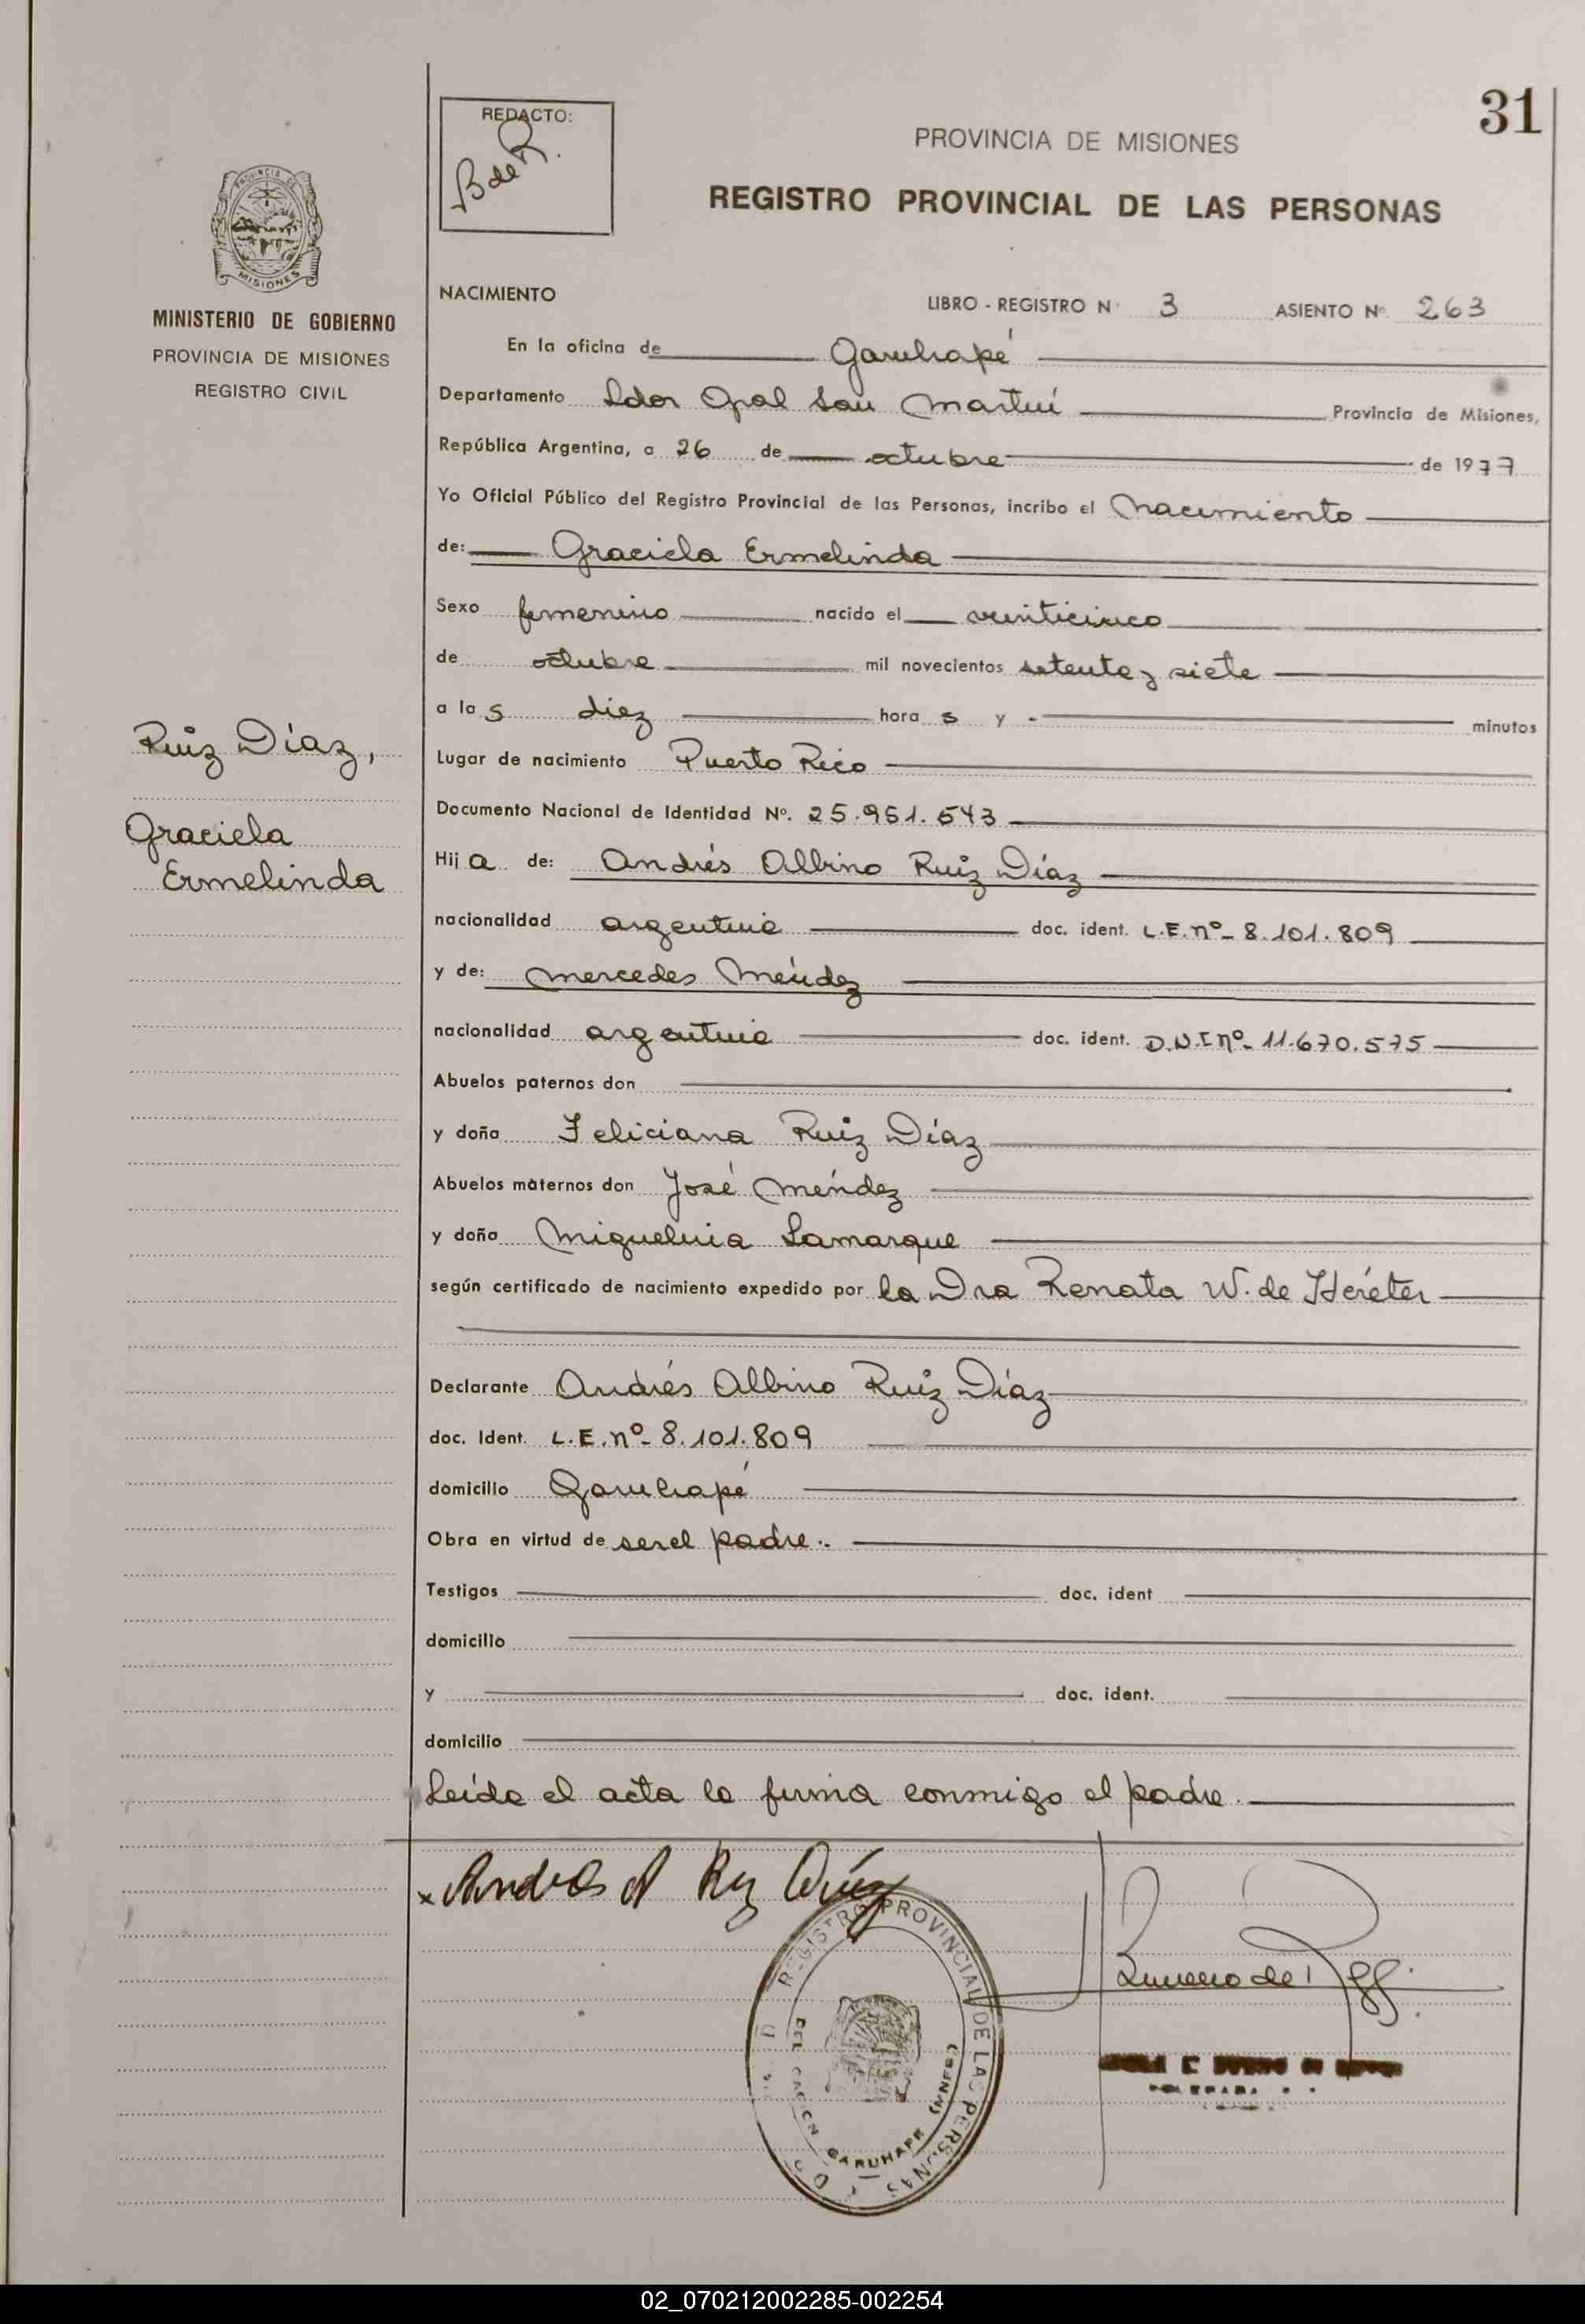 31
REDACTO:
B de R.
PROVINCIA DE MISIONES
REGISTRO PROVINCIAL DE LAS PERSONAS
PROVINCIA DE
MISIONES
MINISTERIO DE GOBIERNO
PROVINCIA DE MISIONES
REGISTRO CIVIL
NACIMIENTO
LIBRO - REGISTRO Nº 3 ASIENTO Nº 263
En la oficina de Garuhapé
Departamento Ldor Gral San Martín Provincia de Misiones,
República Argentina, a 26 de octubre de 1977
Yo Oficial Público del Registro Provincial de las Personas, incribo el Nacimiento
de: Graciela Ermelinda
Sexo femenino nacido el veinticinco
de octubre mil novecientos setenta y siete
a la s diez hora s y - minutos
Ruiz Díaz,
Graciela
Ermelinda
Lugar de nacimiento Puerto Rico
Documento Nacional de Identidad Nº. 25.951.543
Hij a de: Andrés Albino Ruiz Díaz
nacionalidad argentina doc. ident. L.E. nº- 8.101.809
y de: Mercedes Méndez
nacionalidad argentina doc. ident. D.N.I nº- 11.670.575
Abuelos paternos don
y doña Feliciana Ruiz Díaz
Abuelos maternos don José Méndez
y doña Miguelina Lamarque
según certificado de nacimiento expedido por la Dra Renata W. de Heréter
Declarante Andrés Albino Ruiz Díaz
doc. Ident. L.E. nº- 8.101.809
domicilio Garuhapé
Obra en virtud de ser el padre..
Testigos doc. ident
domicilio
y doc. ident.
domicilio
Leída el acta la firma conmigo el padre.
x Andres A Ruz Díaz
REGISTRO PROVINCIAL DE LAS PERSONAS
GARUHAPE (MNES)
02_070212002285-002254